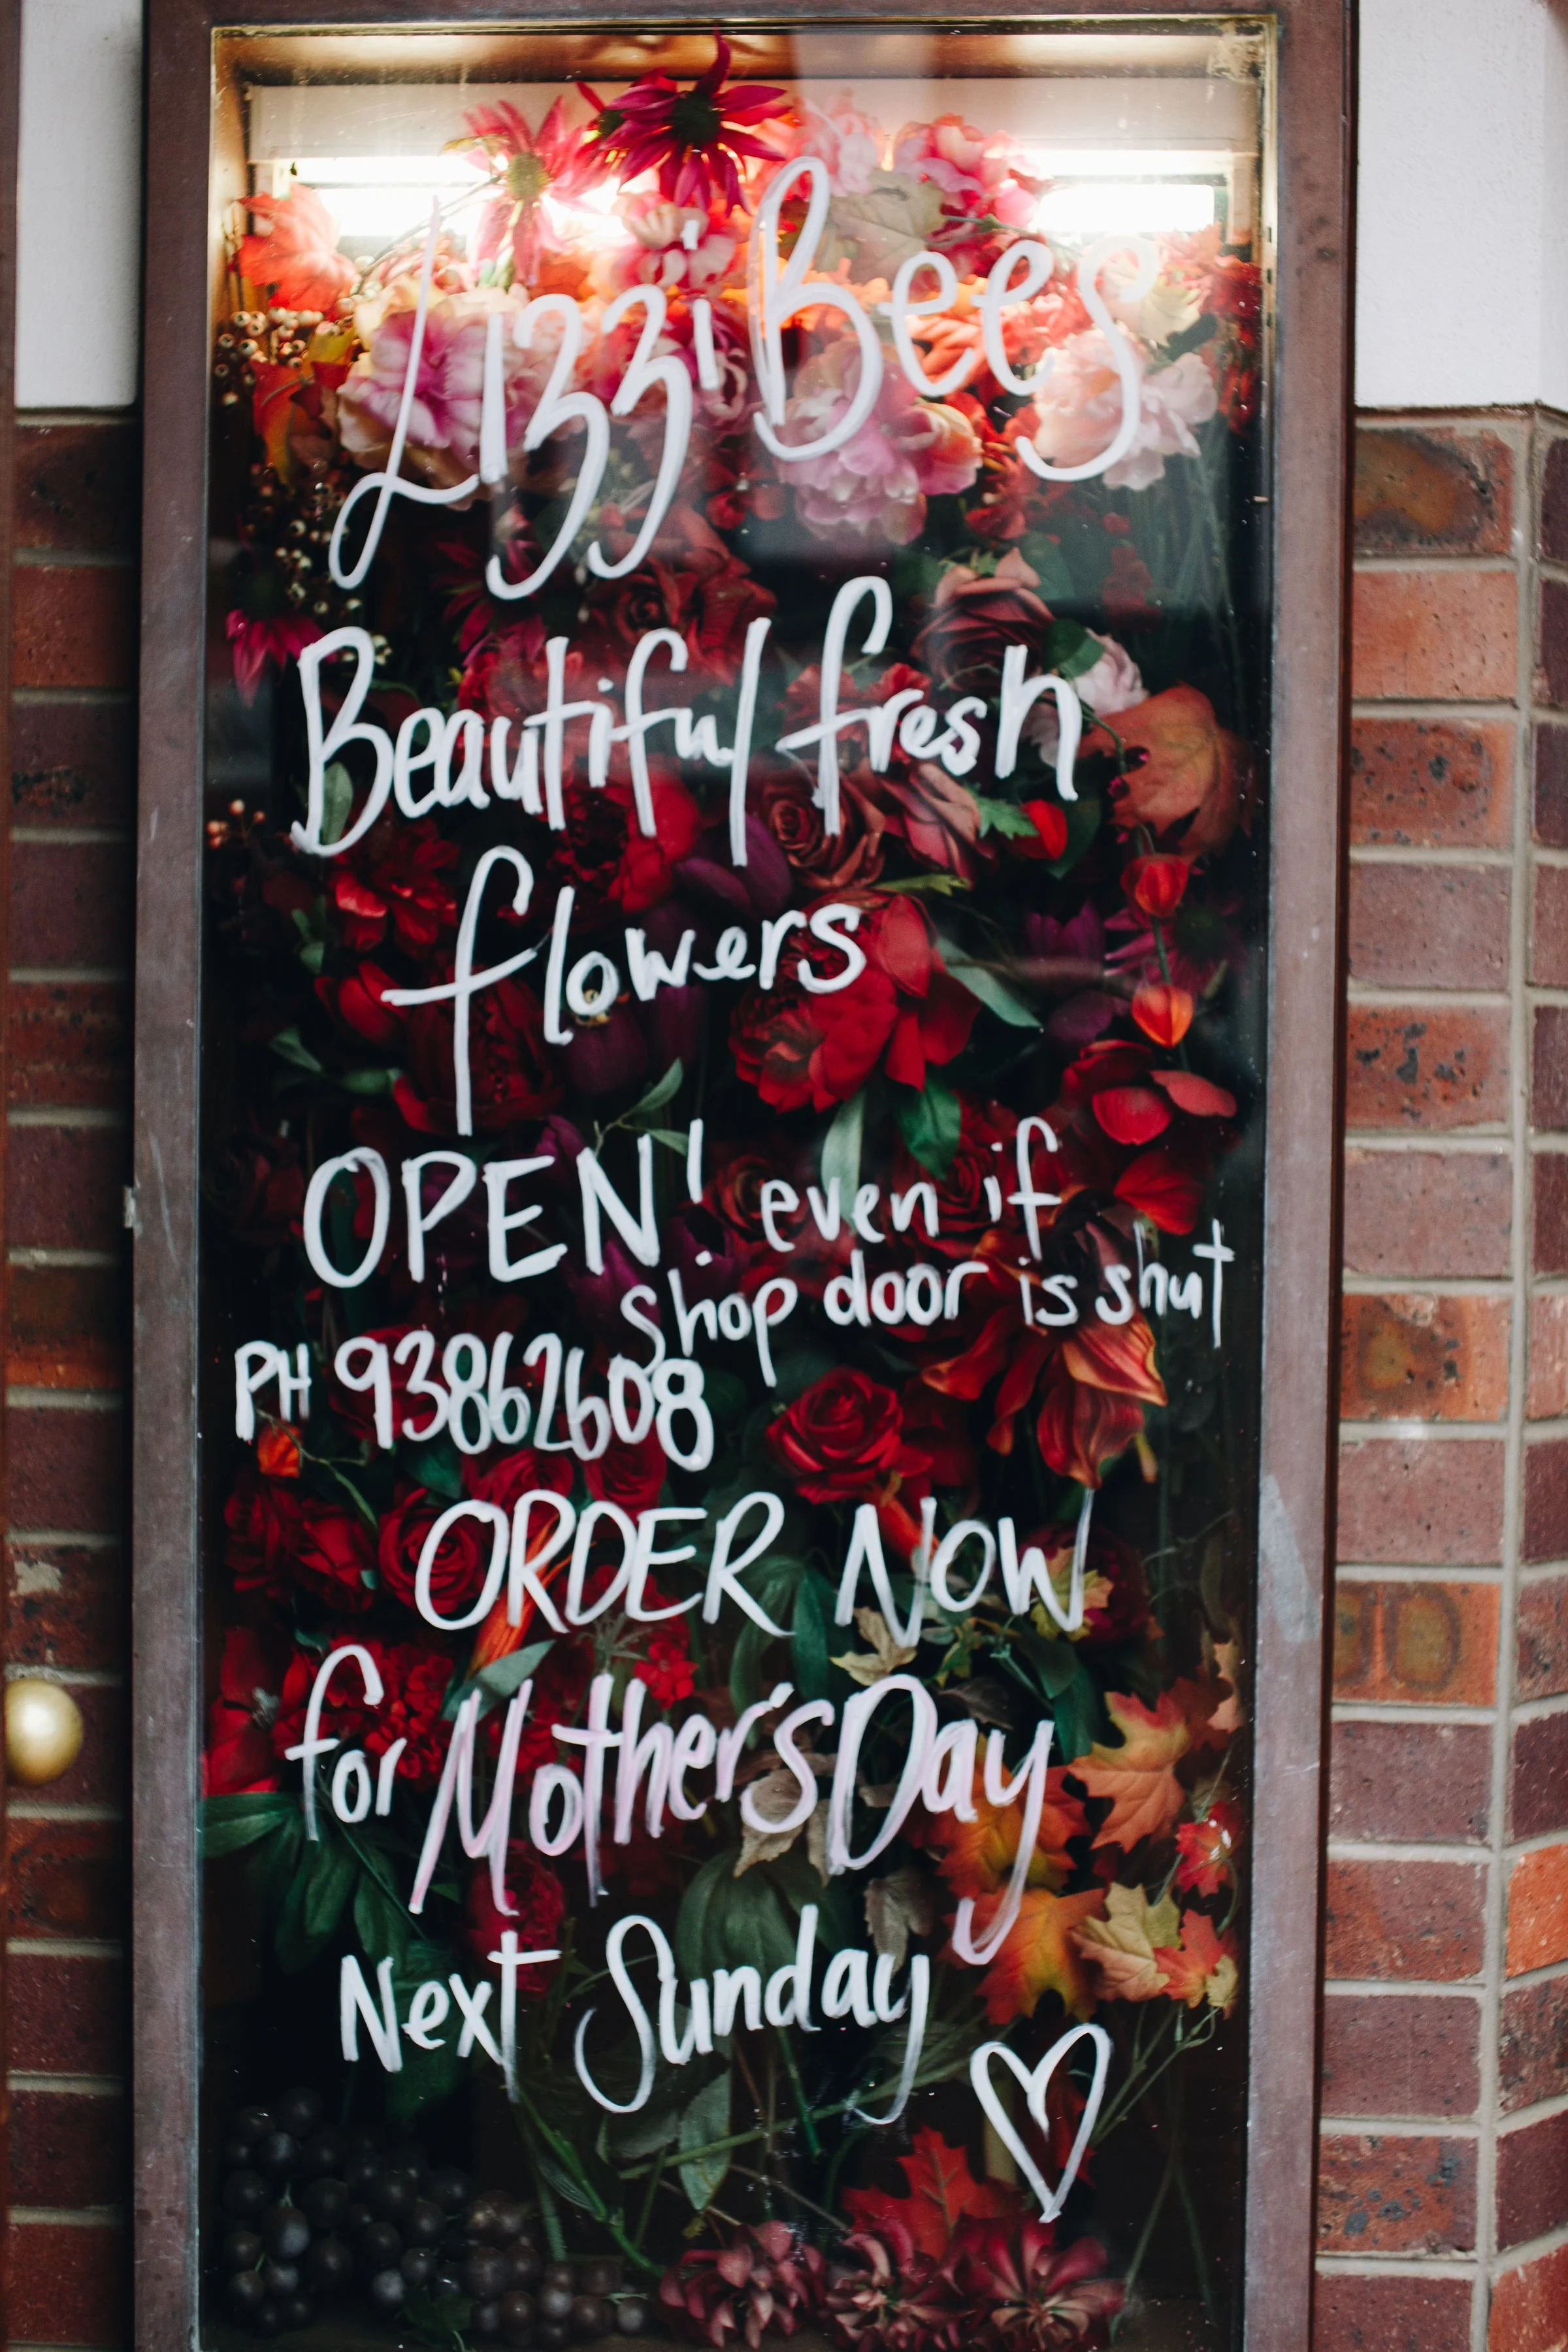 Lizzi Bees
Beautiful fresh
flowers
OPEN! even if
shop door is shut
PH 93862608
ORDER NOW
for Mother's Day
Next Sunday